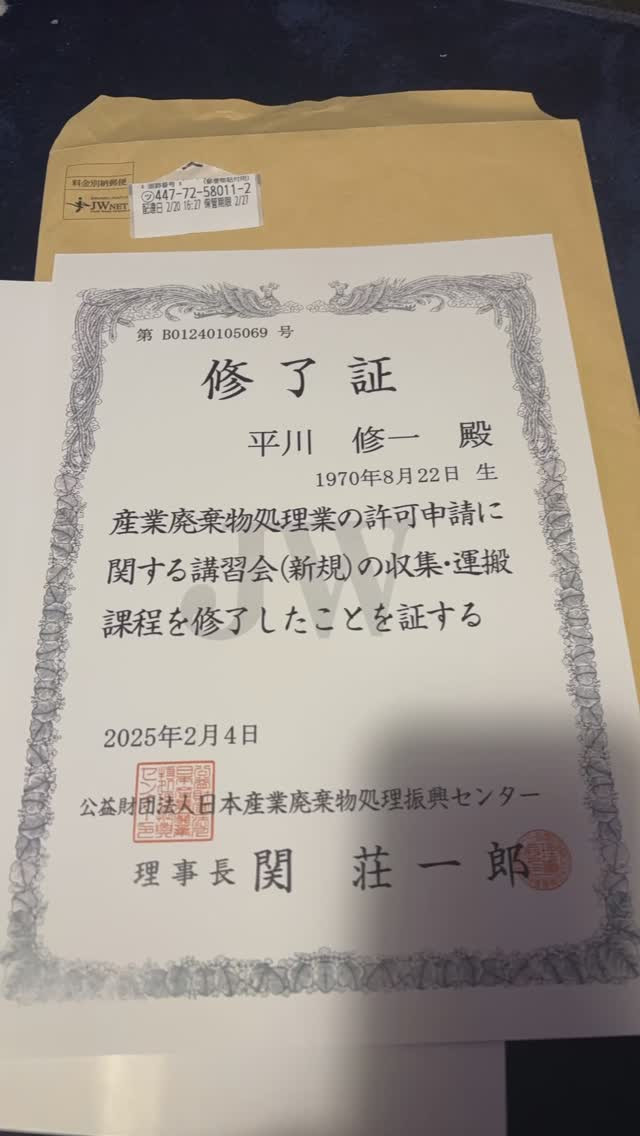 料金別納郵便
JWNET
(郵便物貼付用)
447-72-58011-2
配達日 2/20 16:27 保管期限 2/27
第 B01240105069 号
修了証
平川 修一 殿
1970年8月22日 生
産業廃棄物処理業の許可申請に
関する講習会(新規)の収集・運搬
課程を修了したことを証する
JW
2025年2月4日
公益財団法人日本産業廃棄物処理振興センター
理事長 関 荘一郎